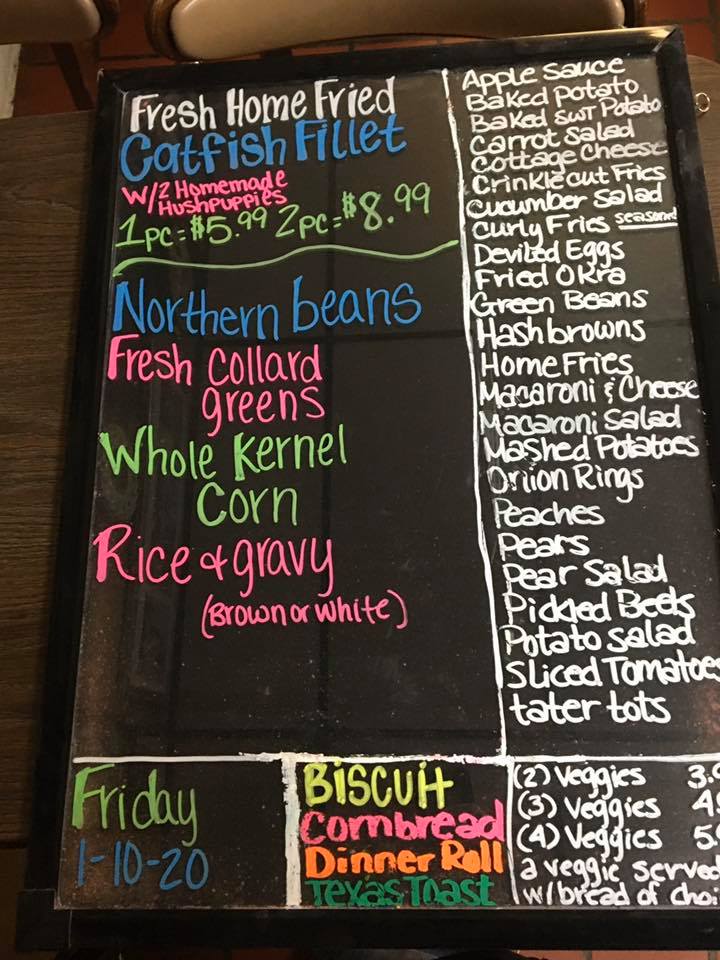 Fresh Home Fried
Catfish Fillet
W/2 Homemade
Hushpuppies
1pc=$5.99 2pc=$8.99
Northern beans
Fresh Collard
greens
Whole Kernel
Corn
Rice & gravy
(Brown or white)
Apple Sauce
Baked Potato
Baked SWT Potato
Carrot Salad
Cottage Cheese
Crinkle cut Fries
Cucumber Salad
Curly Fries seasoned
Deviled Eggs
Fried Okra
Green Beans
Hashbrowns
Home Fries
Macaroni & Cheese
Macaroni Salad
Mashed Potatoes
Onion Rings
Peaches
Pears
Pear Salad
Pickled Beets
Potato Salad
Sliced Tomatoes
tater tots
Friday
1-10-20
Biscuit
Cornbread
Dinner Roll
Texas Toast
(2) Veggies 3.
(3) Veggies 4
(4) Veggies 5
a veggie served
w/bread of